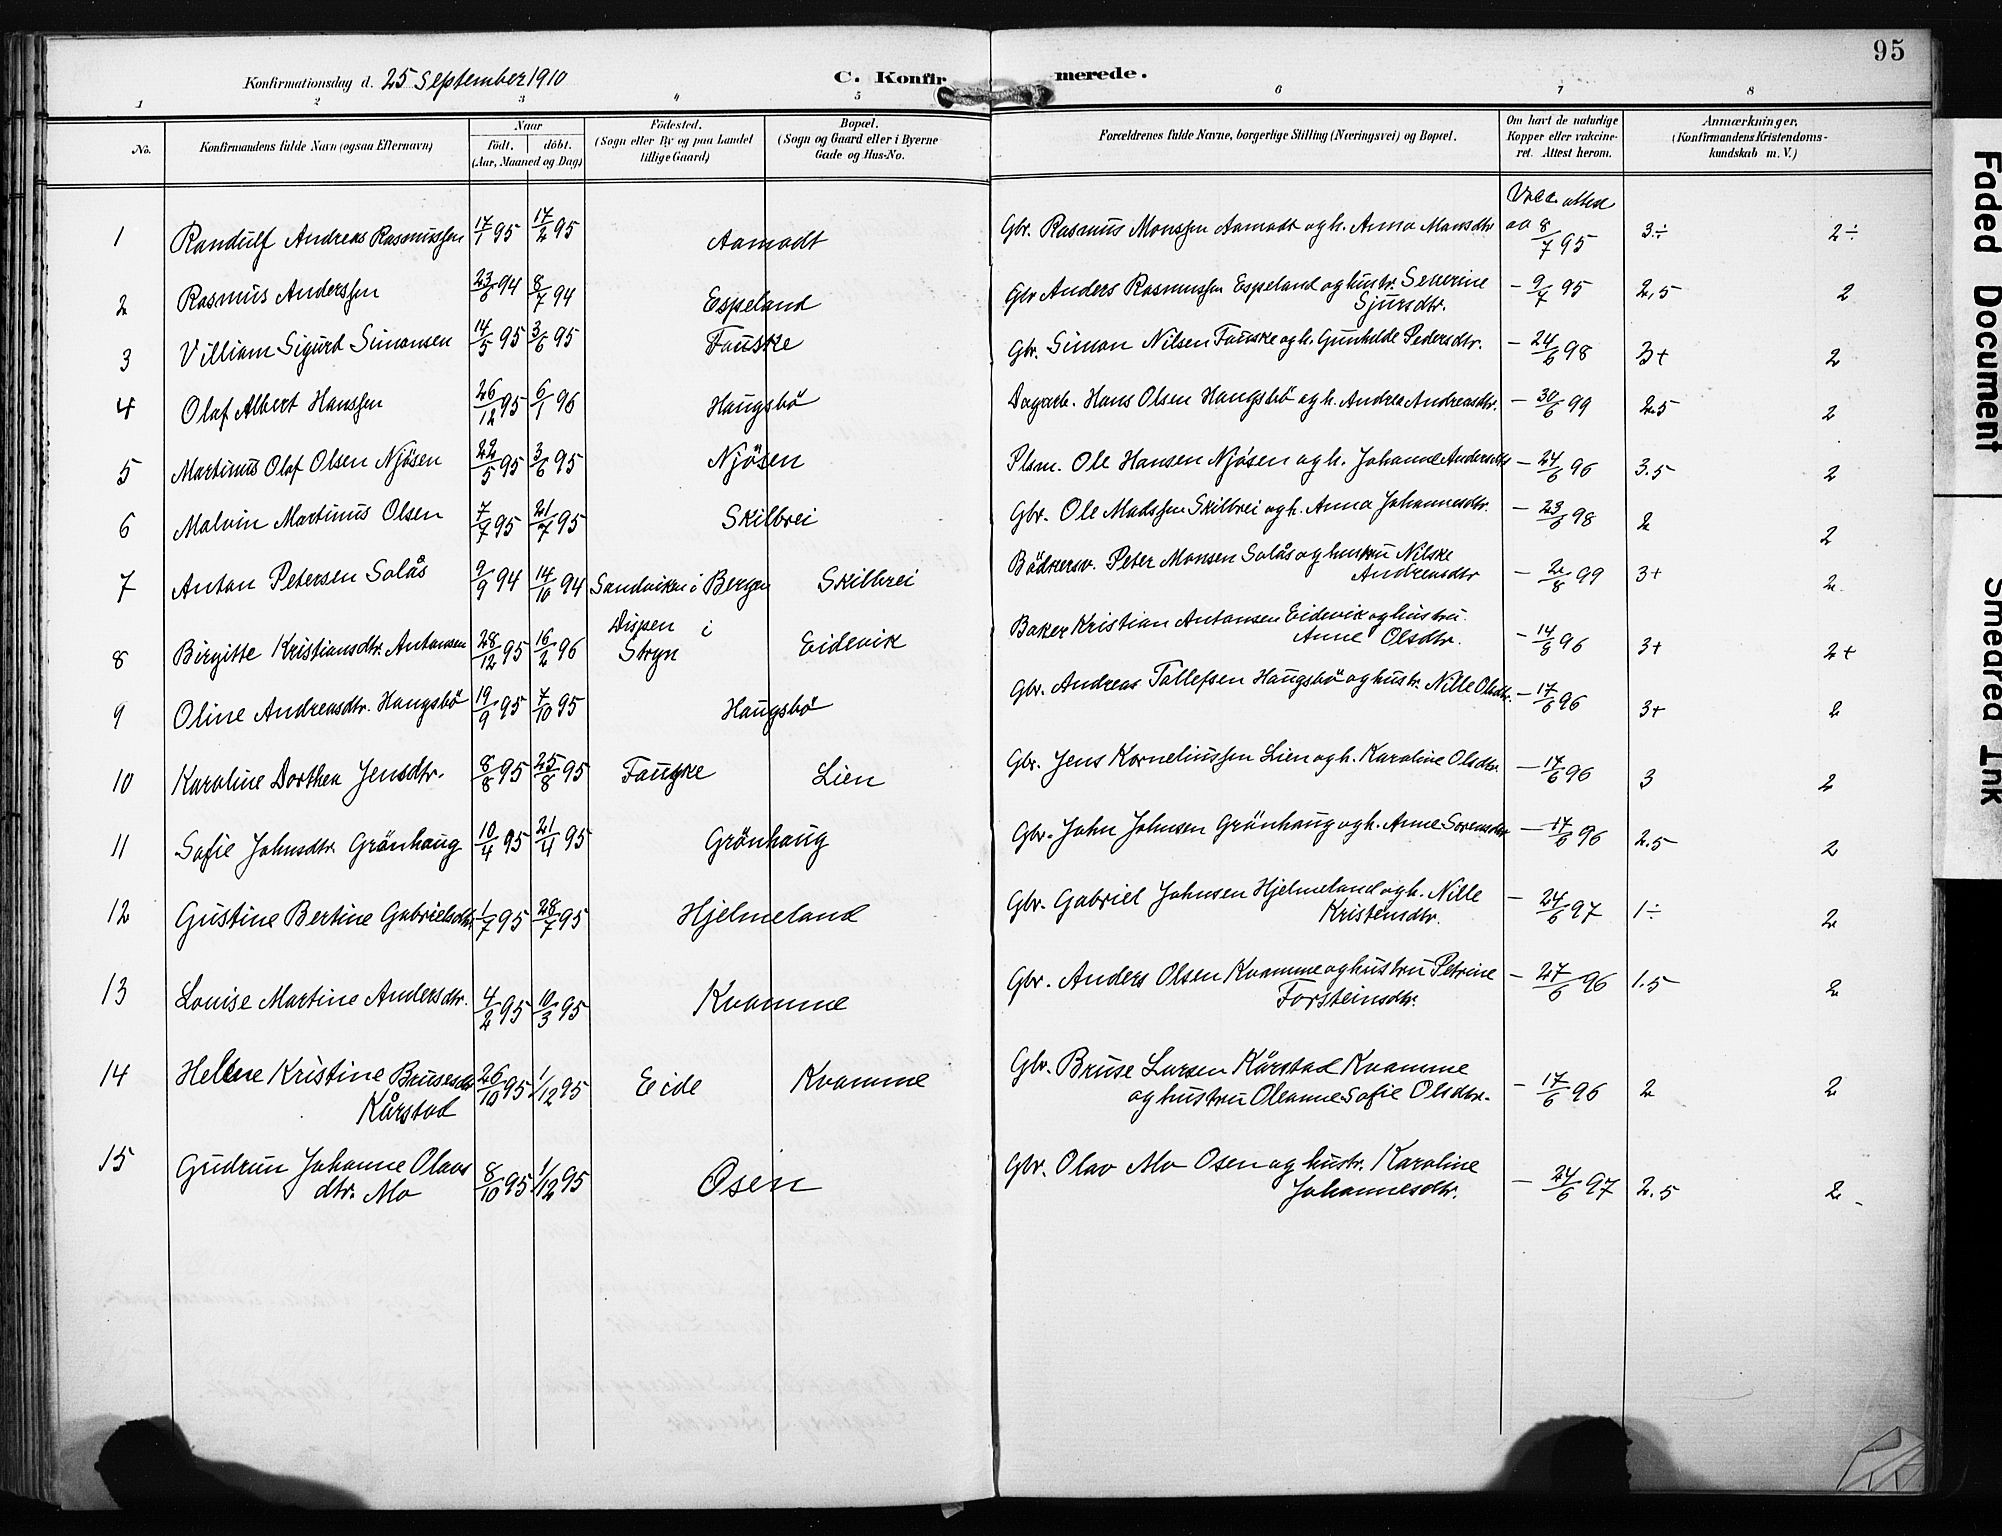 95
Konfirmationsdag d. 25 September 1910
C. Konfirmerede.
1 2 3 4 5 6 7 8
No.
Konfirmandens fulde Navn (ogsaa Efternavn)
Naar
født. døbt.
(Aar, Maaned og Dag)
Fødested.
(Sogn eller By og paa Landet
tillige Gaard)
Bopæl.
(Sogn og Gaard eller i Byerne
Gade og Hus-No.
Forældrenes fulde Navne, borgerlige Stilling (Næringsvei) og Bopæl.
Om havt de naturlige
Kopper eller vakcine-
ret. Attest herom.
Anmærkninger,
(Konfirmandens Kristendoms-
kundskab m. V.)
Vacc. attest
1 Randulf Andreas Rasmussen 17/1 95 17/2 95 Aamodt Gbr. Rasmus Monssen Aamodt og h. Anna Mansdtr 8/7 95 3÷ 2÷
2 Rasmus Anderssen 23/6 94 8/7 94 Espeland Gbr Anders Rasmussen Espeland og hustr. Severine
Sjursdtr. – 9/7 95 2,5 2
3 Villiam Sigurd Simonsen 14/5 95 3/6 95 Fauske Gbr. Simon Nilsen Fauske og h. Gunhilde Pedersdtr. – 24/6 98 3+ 2
4 Olaf Albert Hanssen 26/12 95 6/1 96 Haugsbö Dagarb. Hans Olsen Haugsbö og h. Andrea Andreasdtr. – 30/6 99 2.5 2
5 Martinus Olaf Olsen Njøsen 22/5 95 3/6 95 Njøsen Plsm. Ole Hansen Njøsen og h. Johanne Andersdtr – 24/6 96 3.5 2
6 Malvin Martinus Olsen 7/7 95 21/7 95 Skilbrei Gbr. Ole Madssen Skilbrei og h. Anna Johannesdtr. – 23/6 98 2 2
7 Anton Petersen Solås 9/9 94 14/10 94 Sandviken i Bergen Skilbrei Bödkersv. Peter Monsen Solås og hustru Nilske
Andreasdtr – 2/8 99 3+ 2
8 Birgitte Kristiansdtr. Antonsen 28/12 95 16/2 96 i
Stryn Eidevik Baker Kristian Antonsen Eidevik og hustru
Anne Olsdtr. – 14/8 96 3+ 2+
9 Oline Andreasdtr. Haugsbö 19/9 95 7/10 95 Haugsbö Gbr. Andreas Tollefsen Haugsbö og hustr. Nille Olsdtr. – 17/6 96 3+ 2
10 Karoline Dorthea Jensdtr. 8/8 95 25/8 95 Fauske Lien Gbr. Jens Korneliussen Lien og h. Karoline Olsdtr. – 17/6 96 3 2
11 Sofie Johnsdtr. Grönhaug 10/4 95 21/4 95 Grönhaug Gbr. John Johnsen Grönhaug og h. Anne Sorensdtr – 17/6 96 2.5 2
12 Gustine Bertine Gabrielsdtr. 1/7 95 28/7 95 Hjelmeland Gbr. Gabriel Johnsen Hjelmeland og h. Nille
Kristensdtr. – 24/6 97 1÷ 2
13 Louise Martine Andersdtr. 4/2 95 10/3 95 Kvamme Gbr. Anders Olsen Kvamme og hustru Petrine
Torsteinsdtr. – 27/6 96 1.5 2
14 Hellene Kristine Brusesdtr
Kårstad 26/10 95 1/12 95 Eide Kvamme Gbr. Bruse Larsen Kårstad Kvamme
og hustru Oleanne Sofie Olsdtr. – 17/6 96 2 2
15 Gudrun Johanne Olavs
dtr. Mo 8/10 95 1/12 95 Osen Gbr. Olav Mo Osen og hustr. Karoline
Johannesdtr. – 24/6 97 2.5 2
Faded Document
Smeared Ink